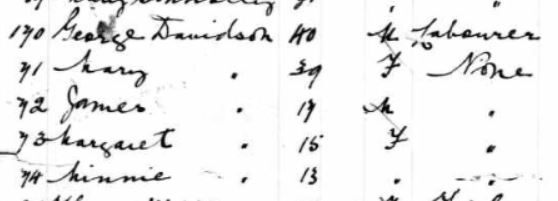 170 George Davidson 40 M Labourer
71 Mary " 39 F None
72 James " 17 M "
73 Margaret " 15 F "
74 Minnie " 13 " "